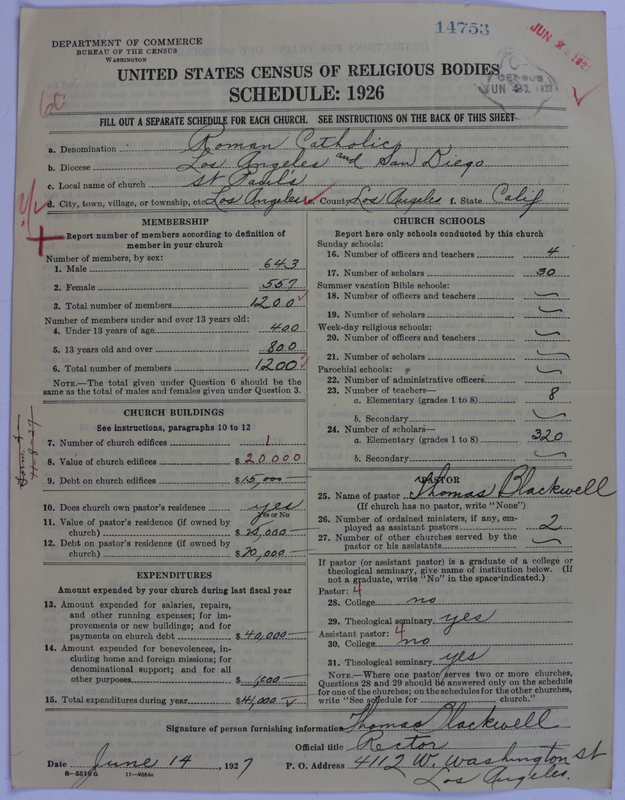 14753
DEPARTMENT OF COMMERCE
BUREAU OF THE CENSUS
WASHINGTON
UNITED STATES CENSUS OF RELIGIOUS BODIES
SCHEDULE: 1926
FILL OUT A SEPARATE SCHEDULE FOR EACH CHURCH. SEE INSTRUCTIONS ON THE BACK OF THIS SHEET
a. Denomination Roman Catholic
b. Diocese Los Angeles and San Diego
c. Local name of church St Paul's
d. City, town, village, or township, etc. Los Angeles e. County Los Angeles f. State Calif
MEMBERSHIP
Report number of members according to definition of
member in your church
Number of members, by sex:
1. Male 643
2. Female 557
3. Total number of members 1200
Number of members under and over 13 years old:
4. Under 13 years of age 400
5. 13 years old and over 800
6. Total number of members 1200
NOTE.—The total given under Question 6 should be the
same as the total of males and females given under Question 3.
CHURCH BUILDINGS
See instructions, paragraphs 10 to 12
7. Number of church edifices 1
8. Value of church edifices $ 20000
9. Debt on church edifices $ 15,000
10. Does church own pastor's residence yes
Yes or No
11. Value of pastor's residence (if owned by
church) $
12. Debt on pastor's residence (if owned by
church) $ 20,000
EXPENDITURES
Amount expended by your church during last fiscal year
13. Amount expended for salaries, repairs,
and other running expenses; for im-
provements or new buildings; and for
payments on church debt $ 40,000
14. Amount expended for benevolences, in-
cluding home and foreign missions; for
denominational support; and for all
other purposes $
15. Total expenditures during year $ 41,000
CHURCH SCHOOLS
Report here only schools conducted by this church
Sunday schools:
16. Number of officers and teachers 4
17. Number of scholars 30
Summer vacation Bible schools:
18. Number of officers and teachers
19. Number of scholars
Week-day religious schools:
20. Number of officers and teachers
21. Number of scholars
Parochial schools:
22. Number of administrative officers
23. Number of teachers—
a. Elementary (grades 1 to 8) 8
b. Secondary
24. Number of scholars—
a. Elementary (grades 1 to 8) 320
b. Secondary
PASTOR
25. Name of pastor Thomas Blackwell
(If church has no pastor, write "None")
26. Number of ordained ministers, if any, em-
ployed as assistant pastors 2
27. Number of other churches served by the
pastor or his assistants
If pastor (or assistant pastor) is a graduate of a college or
theological seminary, give name of institution below. (If
not a graduate, write "No" in the space indicated.)
Pastor: 4
28. College no
29. Theological seminary yes
Assistant pastor: 4
30. College no
31. Theological seminary yes
NOTE.—Where one pastor serves two or more churches,
Questions 28 and 29 should be answered only on the schedule
for one of the churches; on the schedules for the other churches,
write "See schedule for church."
Signature of person furnishing information Thomas Blackwell
Official title Rector
Date June 14, 1927 P. O. Address 4112 W. Washington St
Los Angeles.
8—5519a 11—9084c